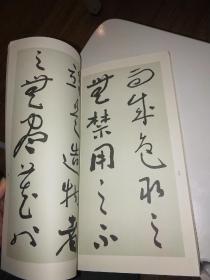 而成色取之
無禁用之不
竭是造物者
之無盡藏也